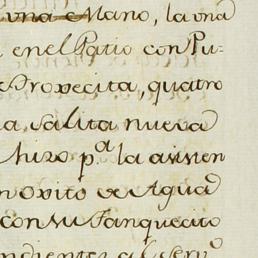 una Mano, la una
en el Patio con Pu-
Provecita, quatro
a, salita nueva
hizo p.a la asisten
novito de Agua
con su Tanquecito
ndientes al servo